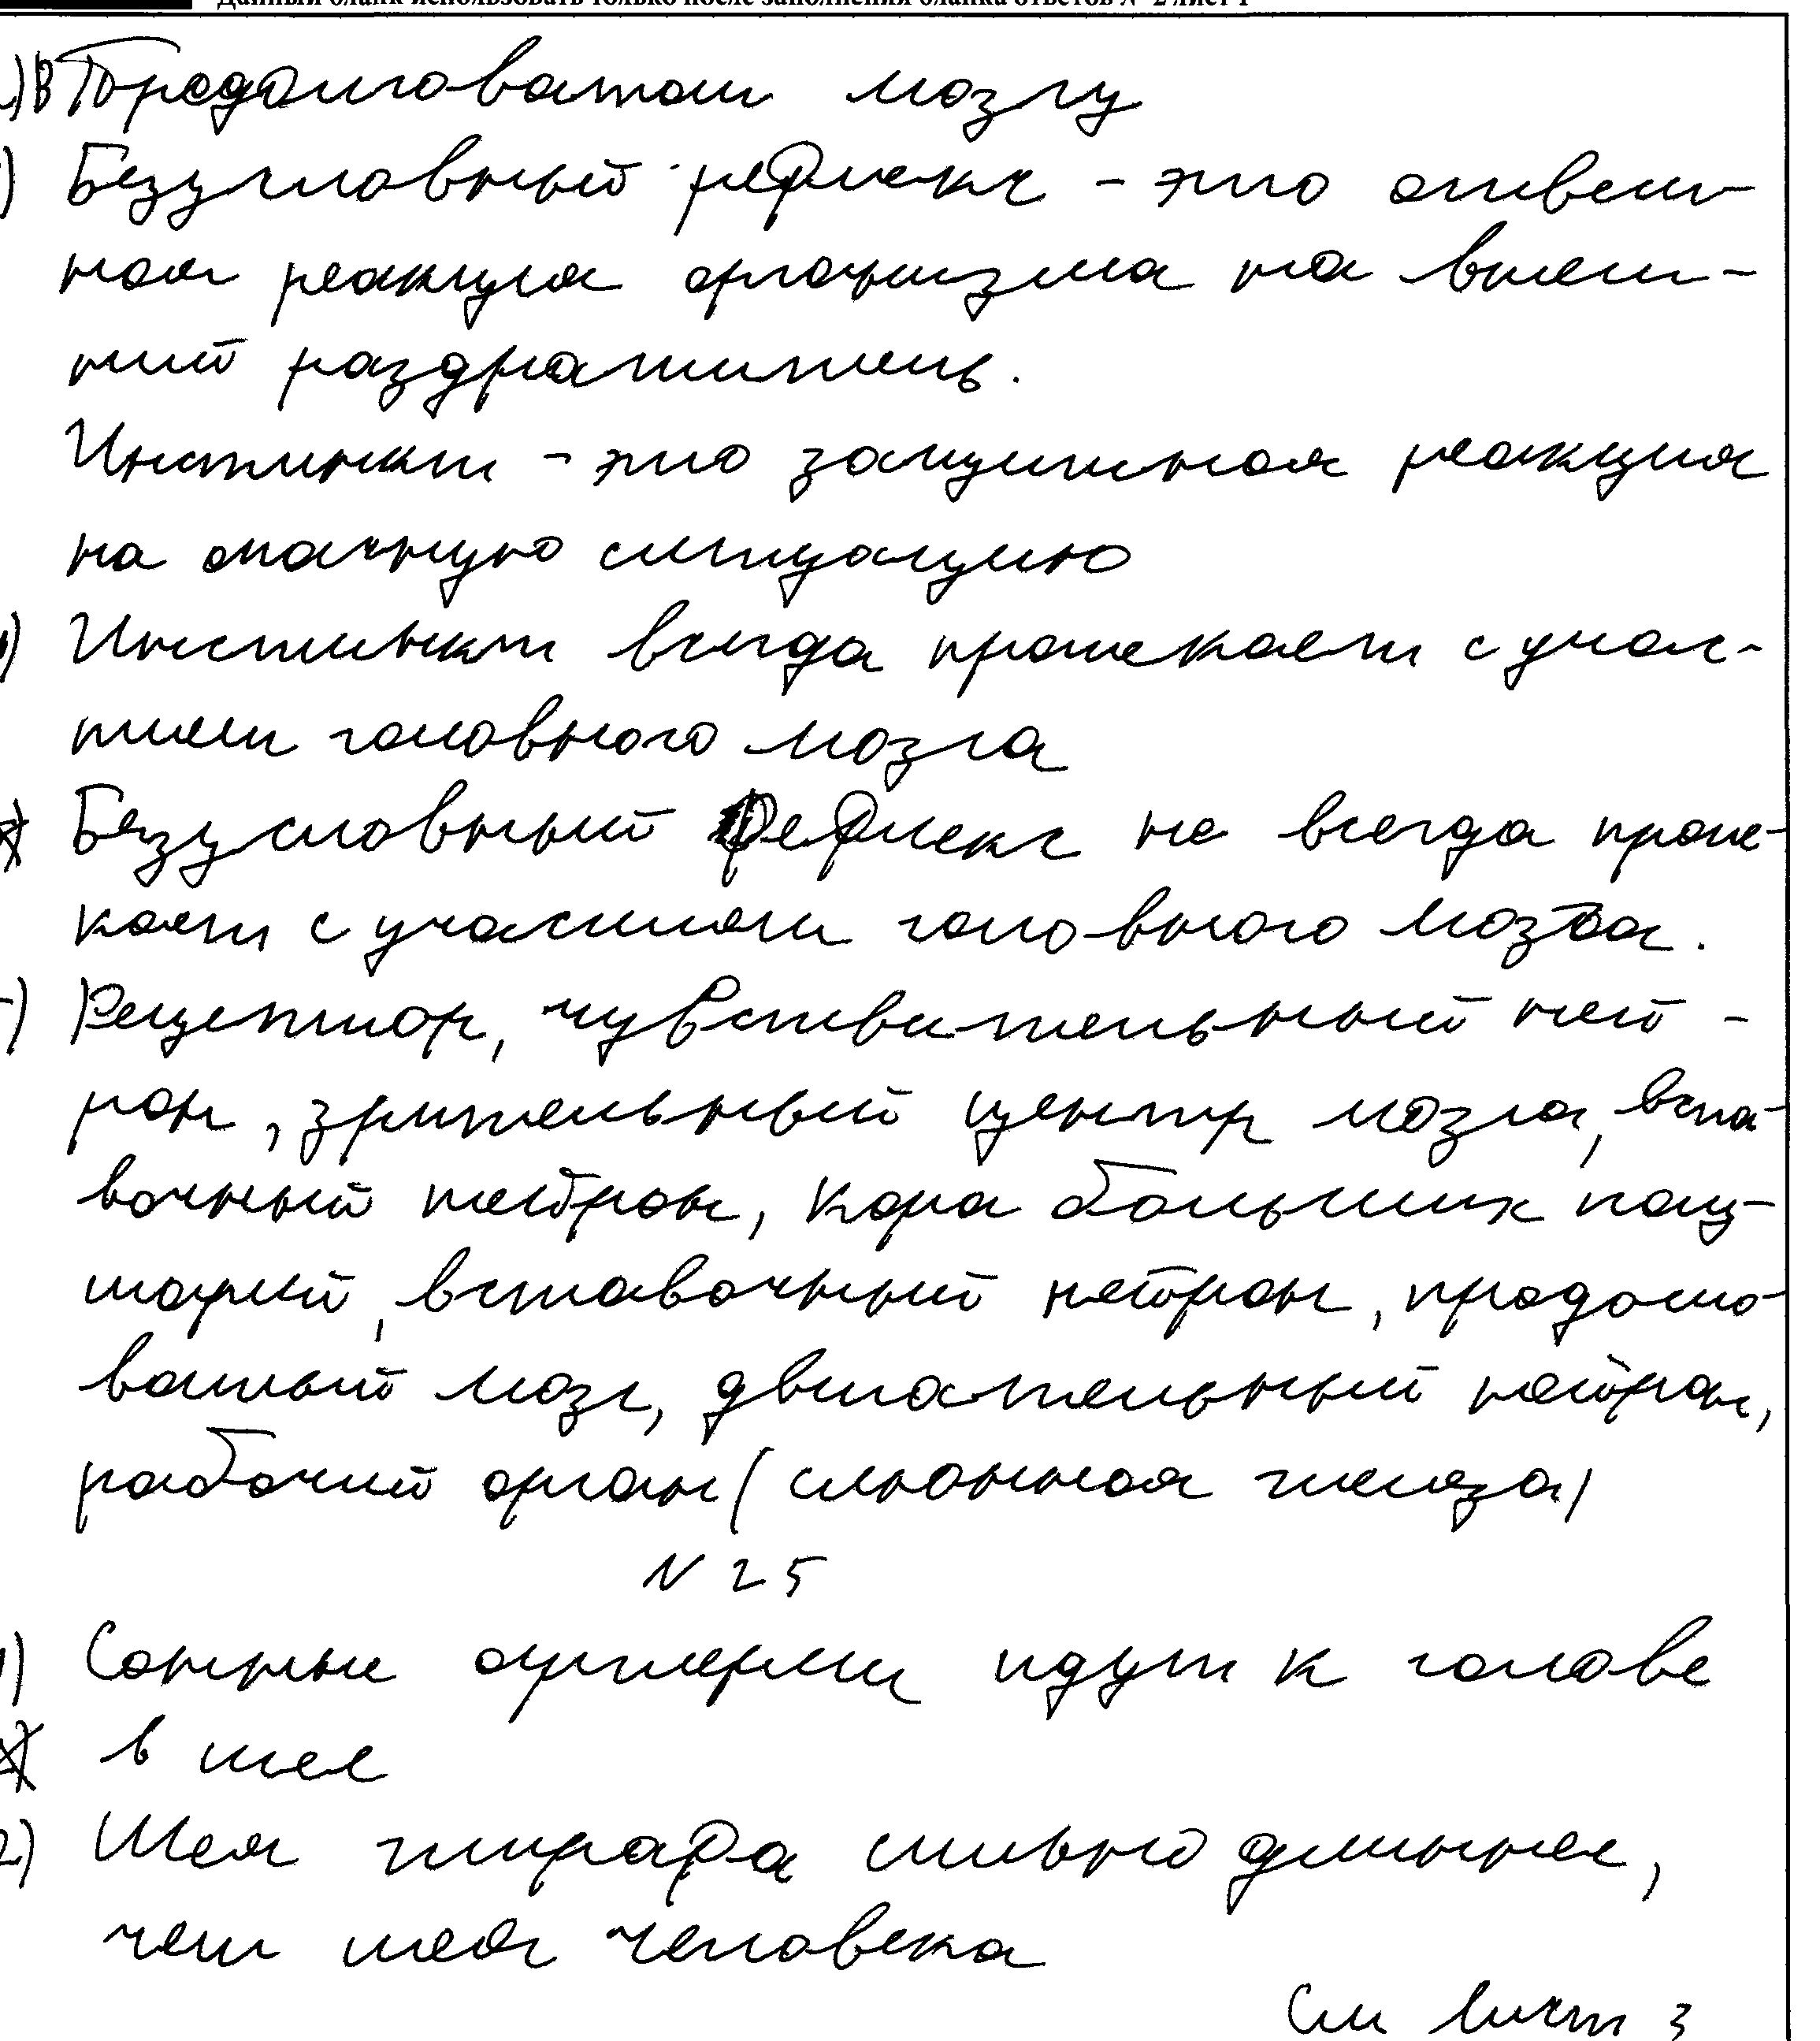 Данный бланк использовать только после заполнения бланка ответов № 2 лист 1
) В Продолговатом мозгу
) Безусловный рефлекс - это ответ-
ная реакция организма на внеш-
ний раздражитель.
Инстинкт - это защитная реакция
на опасную ситуацию
) Инстинкт всегда протекает с учас-
тием головного мозга
Безусловный рефлекс не всегда проте-
кает с участием головного мозга.
) Рецептор, чувствительный ней-
рон, зрительный центр мозга, вста-
вочный нейрон, кора больших полу-
шарий, вставочный нейрон, продолго-
ватый мозг, двигательный нейрон,
рабочий орган (слюнная железа)
N 25
1) Сонные артерии идут к голове
в шее
2) Шея жирафа сильно длиннее,
чем шея человека
См лист 3